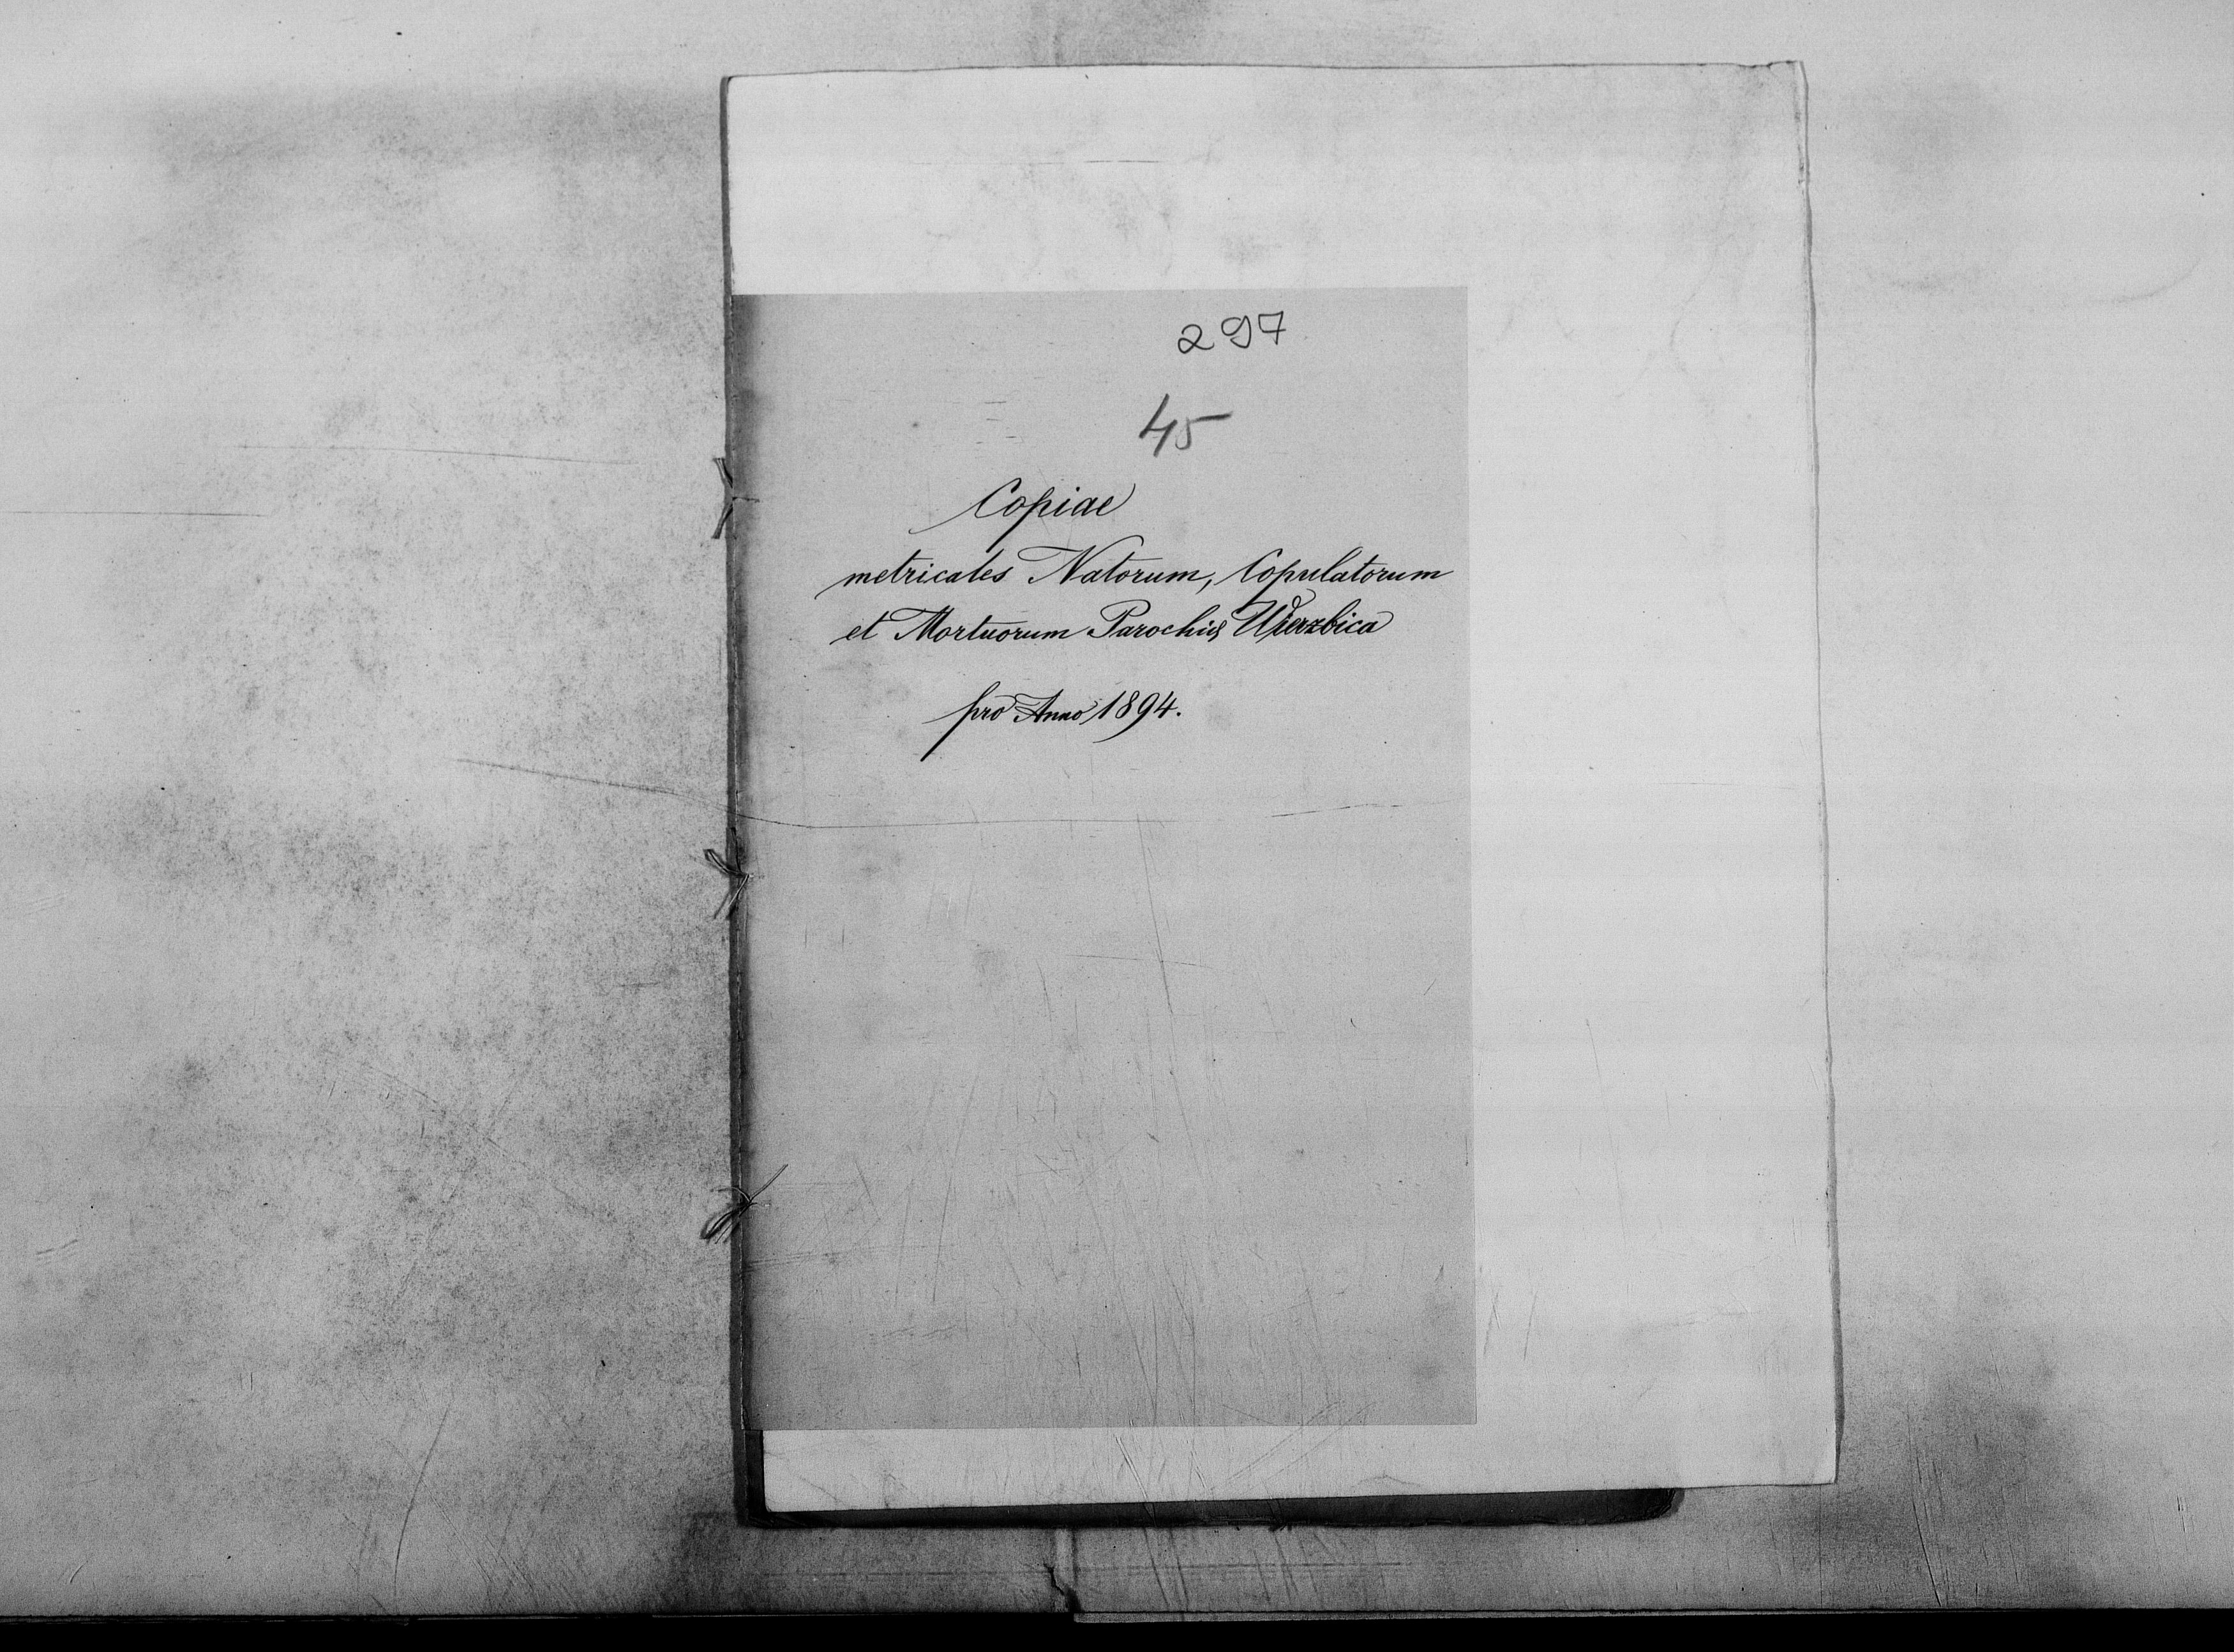 297
45
Copiae
metricales Natorum, Copulatorum
et Mortuorum Parochię Wierzbica
pro Anno 1894.